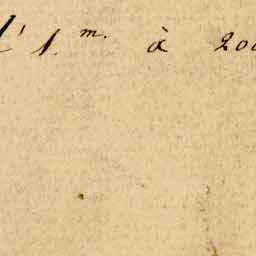 l' 1. m. à 200